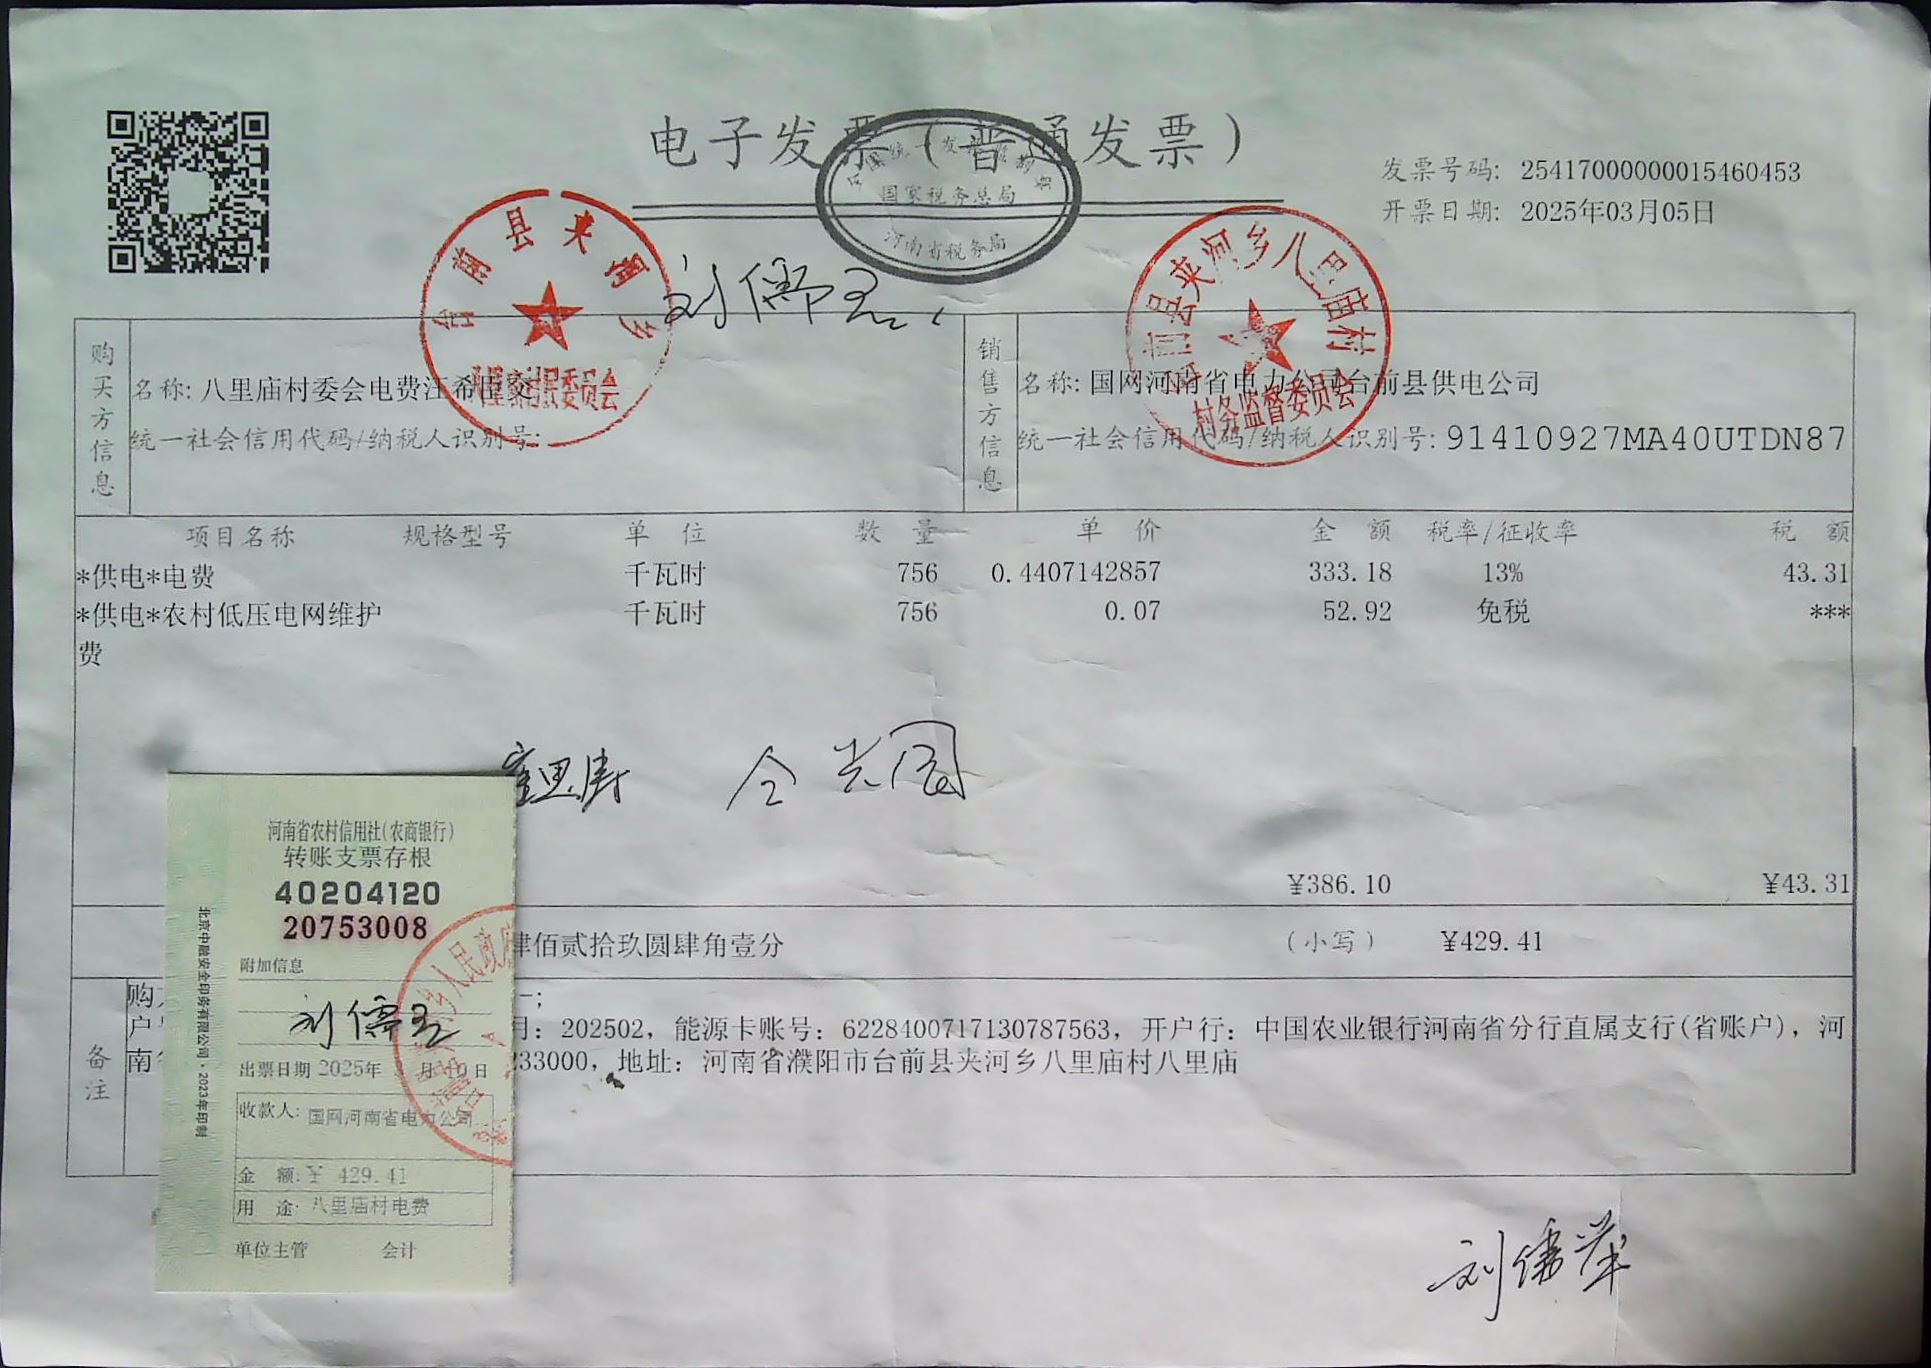 电子发票（普通发票）
全国统一发票监制章
国家税务总局
河南省税务局
发票号码: 25417000000015460453
开票日期: 2025年03月05日
台前县夹河乡
刘儒
台前县夹河乡八里庙村
村务监督委员会
购买方信息
名称: 八里庙村委会电费汪希
统一社会信用代码/纳税人识别号:
销售方信息
名称: 国网河南省电力公司台前县供电公司
统一社会信用代码/纳税人识别号: 91410927MA40UTDN87
项目名称 规格型号 单 位 数 量 单 价 金 额 税率/征收率 税 额
*供电*电费 千瓦时 756 0.4407142857 333.18 13% 43.31
*供电*农村低压电网维护 千瓦时 756 0.07 52.92 免税 ***
费
¥386.10 ¥43.31
肆佰贰拾玖圆肆角壹分 （小写） ¥429.41
备注
购
户 月: 202502, 能源卡账号: 6228400717130787563, 开户行: 中国农业银行河南省分行直属支行(省账户), 河
南 33000, 地址: 河南省濮阳市台前县夹河乡八里庙村八里庙
河南省农村信用社(农商银行)
转账支票存根
40204120
20753008
附加信息
刘儒
出票日期 2025年 月 日
收款人: 国网河南省电力公司
金 额: ¥ 429.41
用 途: 八里庙村电费
单位主管 会计
北京中融安全印务有限公司·2023年印制
人民政府
刘儒